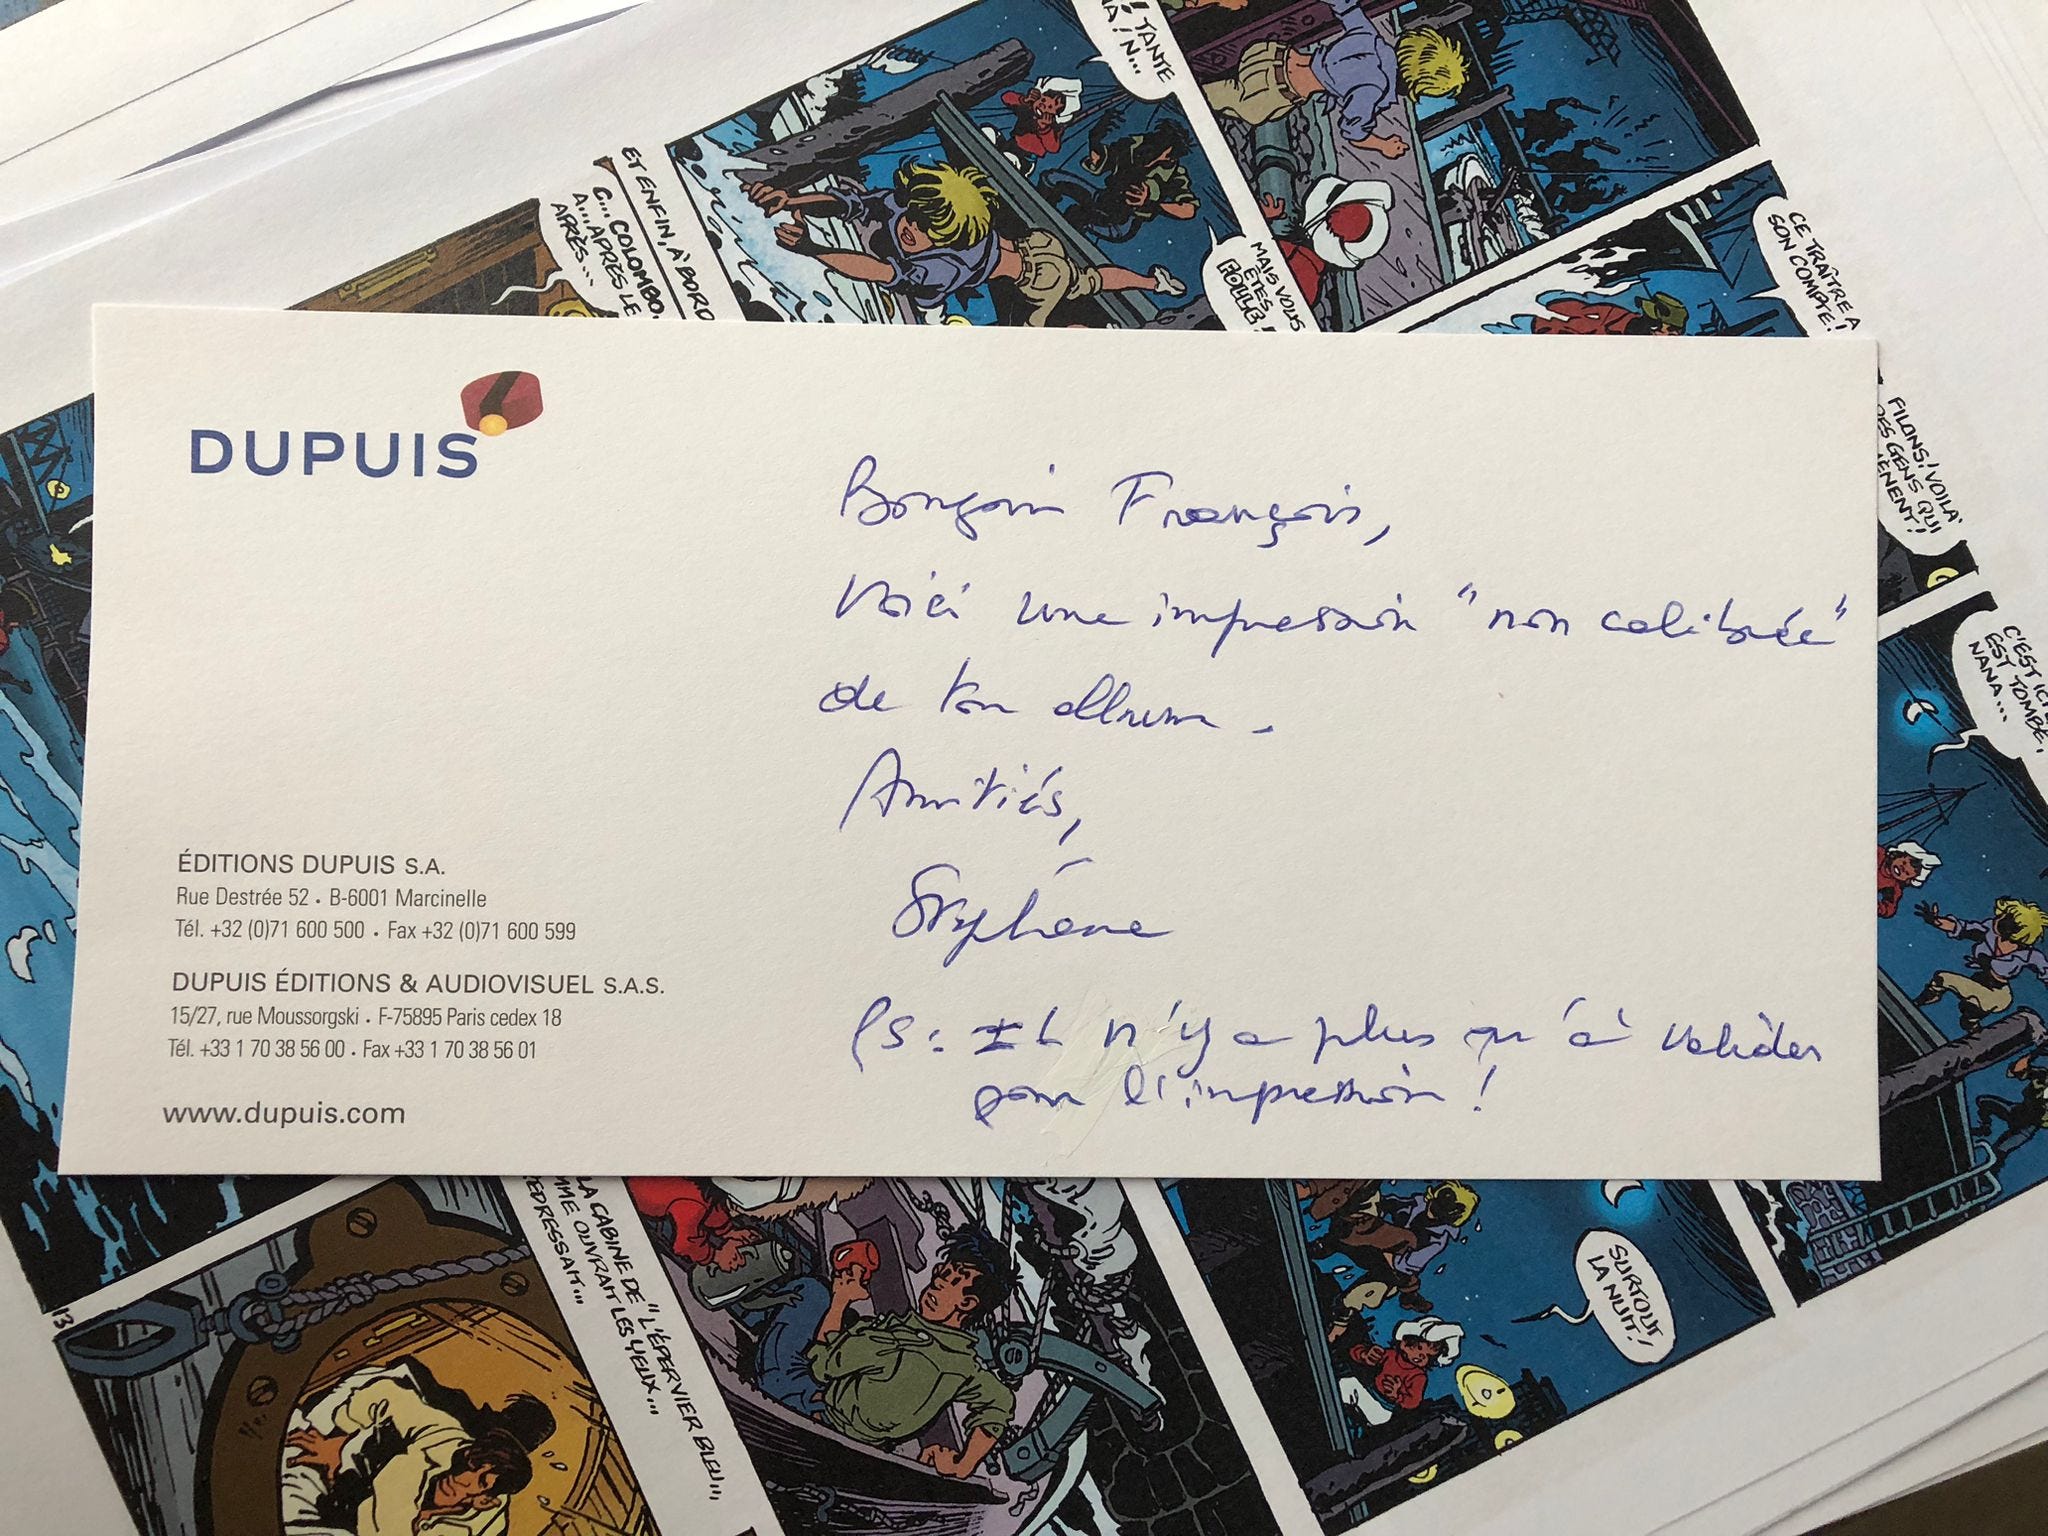 ! TANTE
NA! N...
ET ENFIN, À BORD
C... COLOMBO.
A... APRÈS LE
APRÈS...
MAIS VOUS
ÊTES
CE TRAÎTRE A
SON COMPTE!
FILONS! VOILÀ
DES GENS QUI
C'EST ICI
EST TOMBÉ,
NANA...
DUPUIS
Bonjour François,
Voici une impression "non calibrée"
de ton album.
Amitiés,
Stéphane
PS: IL n'y a plus qu'à valider
pour l'impression!
ÉDITIONS DUPUIS S.A.
Rue Destrée 52 • B-6001 Marcinelle
Tél. +32 (0)71 600 500 • Fax +32 (0)71 600 599
DUPUIS ÉDITIONS & AUDIOVISUEL S.A.S.
15/27, rue Moussorgski • F-75895 Paris cedex 18
Tél. +33 1 70 38 56 00 • Fax +33 1 70 38 56 01
www.dupuis.com
13
LA CABINE DE "L'ÉPERVIER BLEU",
OUVRAIT LES YEUX...
REDRESSAIT...
SURTOUT
LA NUIT!